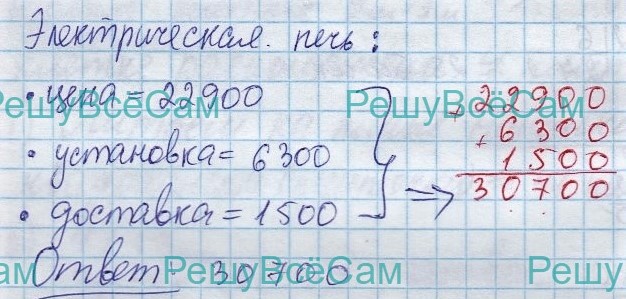 Электрическая. печь:
• цена = 22900
• установка = 6300
• доставка = 1500
+ 22900
+ 6300
1500
30700
Ответ: 30700
РешуВсёСам РешуВсёСам
ам РешуВсёСам РешуВ